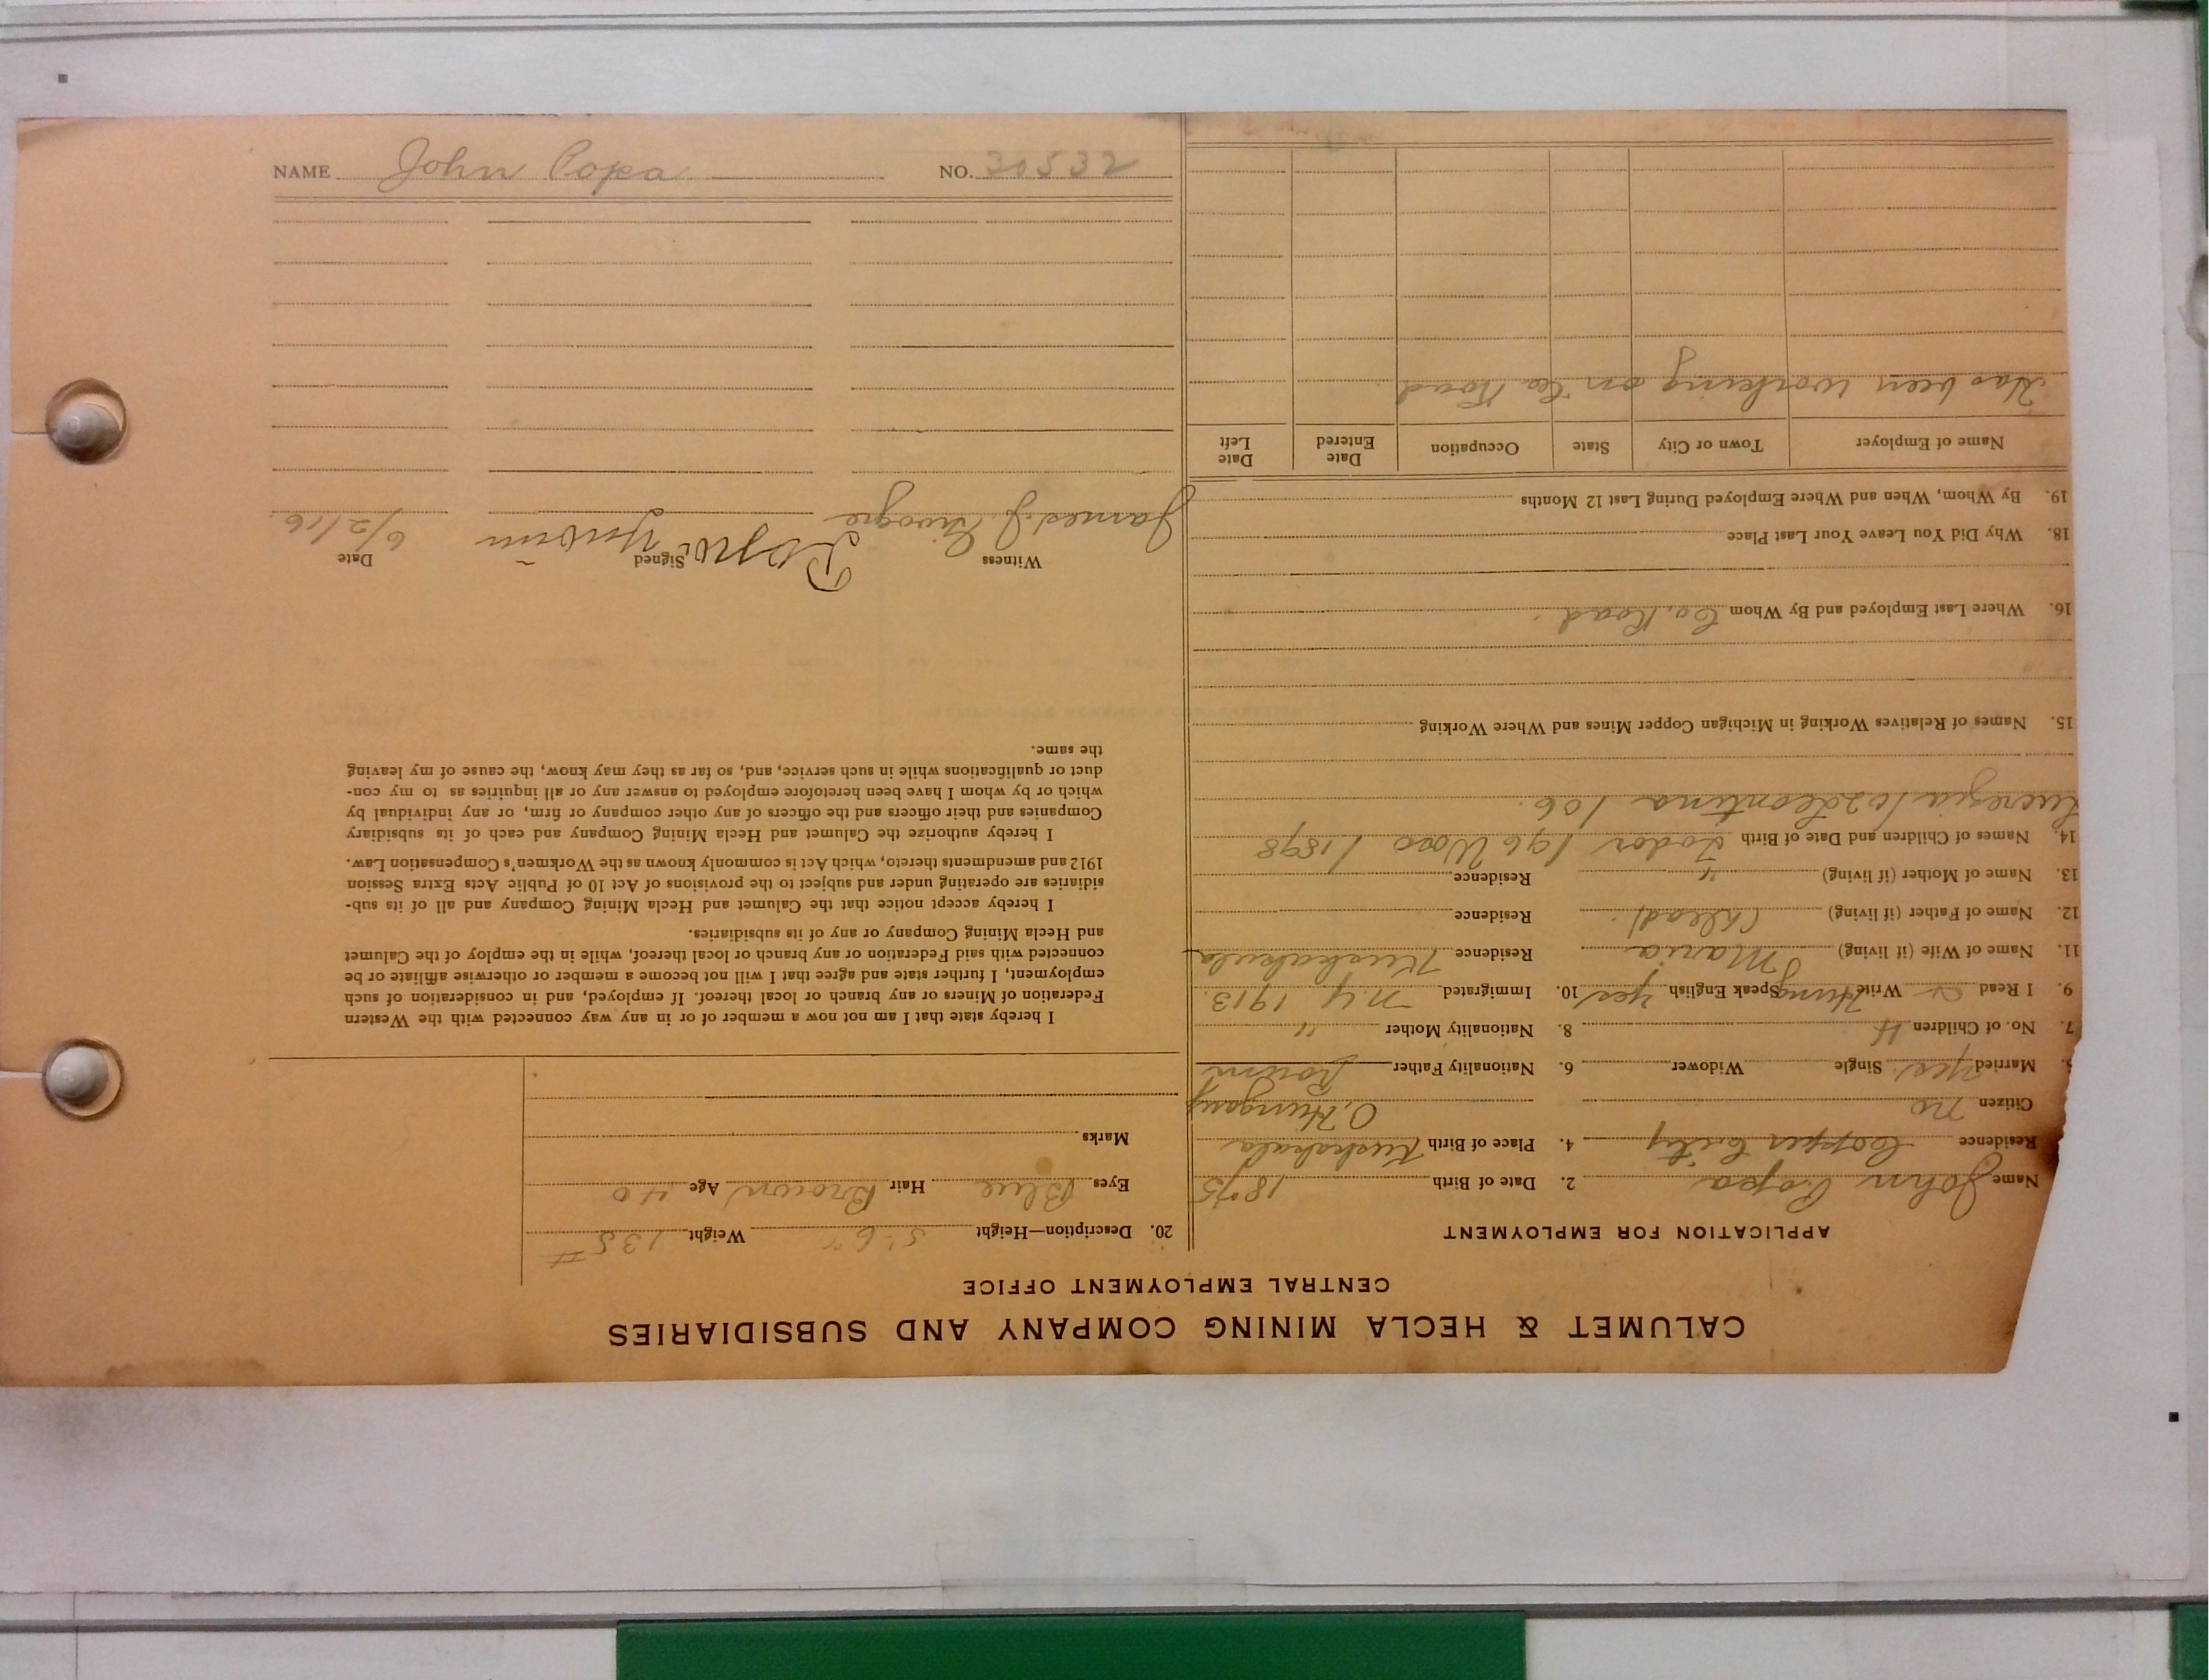 CALUMET & HECLA MINING COMPANY AND SUBSIDIARIES
CENTRAL EMPLOYMENT OFFICE
APPLICATION FOR EMPLOYMENT
Name John Popa 2. Date of Birth 1875
Residence Copper City 4. Place of Birth
Citizen no O. Hungary
5. Married yes. Single Widower 6. Nationality Father Roum
7. No. of Children 4 8. Nationality Mother "
9. I Read Write Hung Speak English yes 10. Immigrated N.Y 1913.
11. Name of Wife (if living) Maria Residence
12. Name of Father (if living) (dead) Residence
13. Name of Mother (if living) " Residence
14. Names of Children and Date of Birth Todor 196 1898
Lucrezia 102 Leontina 106.
15. Names of Relatives Working in Michigan Copper Mines and Where Working
16. Where Last Employed and By Whom Co. Road.
18. Why Did You Leave Your Last Place
19. By Whom, When and Where Employed During Last 12 Months
Name of Employer Town or City State Occupation Date Entered Date Left
Has been working on Co Road.
20. Description—Height 5' 6" Weight 135 #
Eyes Blue Hair Brown Age 40
Marks
I hereby state that I am not now a member of or in any way connected with the Western
Federation of Miners or any branch or local thereof. If employed, and in consideration of such
employment, I further state and agree that I will not become a member or otherwise affiliate or be
connected with said Federation or any branch or local thereof, while in the employ of the Calumet
and Hecla Mining Company or any of its subsidiaries.
I hereby accept notice that the Calumet and Hecla Mining Company and all of its sub-
sidiaries are operating under and subject to the provisions of Act 10 of Public Acts Extra Session
1912 and amendments thereto, which Act is commonly known as the Workmen's Compensation Law.
I hereby authorize the Calumet and Hecla Mining Company and each of its subsidiary
Companies and their officers and the officers of any other company or firm, or any individual by
which or by whom I have been heretofore employed to answer any or all inquiries as to my con-
duct or qualifications while in such service, and, so far as they may know, the cause of my leaving
the same.
Witness Signed Date
James J. 6/2/16.
NAME John Popa NO. 30532